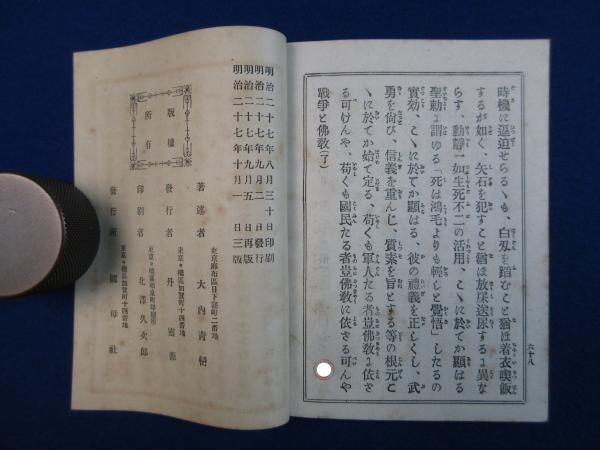 時機に逼迫せらるゝも、白刄を蹈むこと猶ほ着衣喫飯
するが如く、矢石を犯すこと猶ほ放屎送尿するに異な
らす、動靜一如生死不二の活用、こゝに於てか顯はる
聖勅に謂ゆる「死は鴻毛よりも輕しと覺悟」したるの
實効、こゝに於てか顯はる、彼の禮義を正しくし、武
勇を尙び、信義を重んじ、質素を旨とする等の根元こ
ゝに於てか始て定る、苟くも軍人たる者豈佛敎に依さ
る可けんや、苟くも國民たる者豈佛敎に依さる可んや
戰爭と佛敎(了)
六十八
明治二十七年八月三十日印刷
明治二十七年九月二日發行
明治二十七年九月五日再版
明治二十七年十月一日三版
版權
所有
東京麻布區日下窪町二番地
著述者 大內青巒
東京々橋區加賀町十四番地
發行者 丹
印刷者 北澤久次郎
東京々橋區加賀町十四番地
發行所 國母社